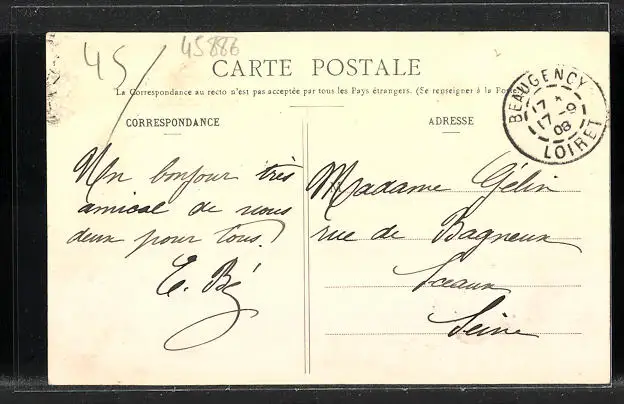 45
45886
CARTE POSTALE
La Correspondance au recto n'est pas acceptée par tous les Pays étrangers. (Se renseigner à la Poste
CORRESPONDANCE
ADRESSE
BEAUGENCY
17 *
17 -9
08
LOIRET
Un bonjour très
amical de nous
deux pour tous.
E. Bé
Madame Gélin
rue de Bagneux
Sceaux
Seine